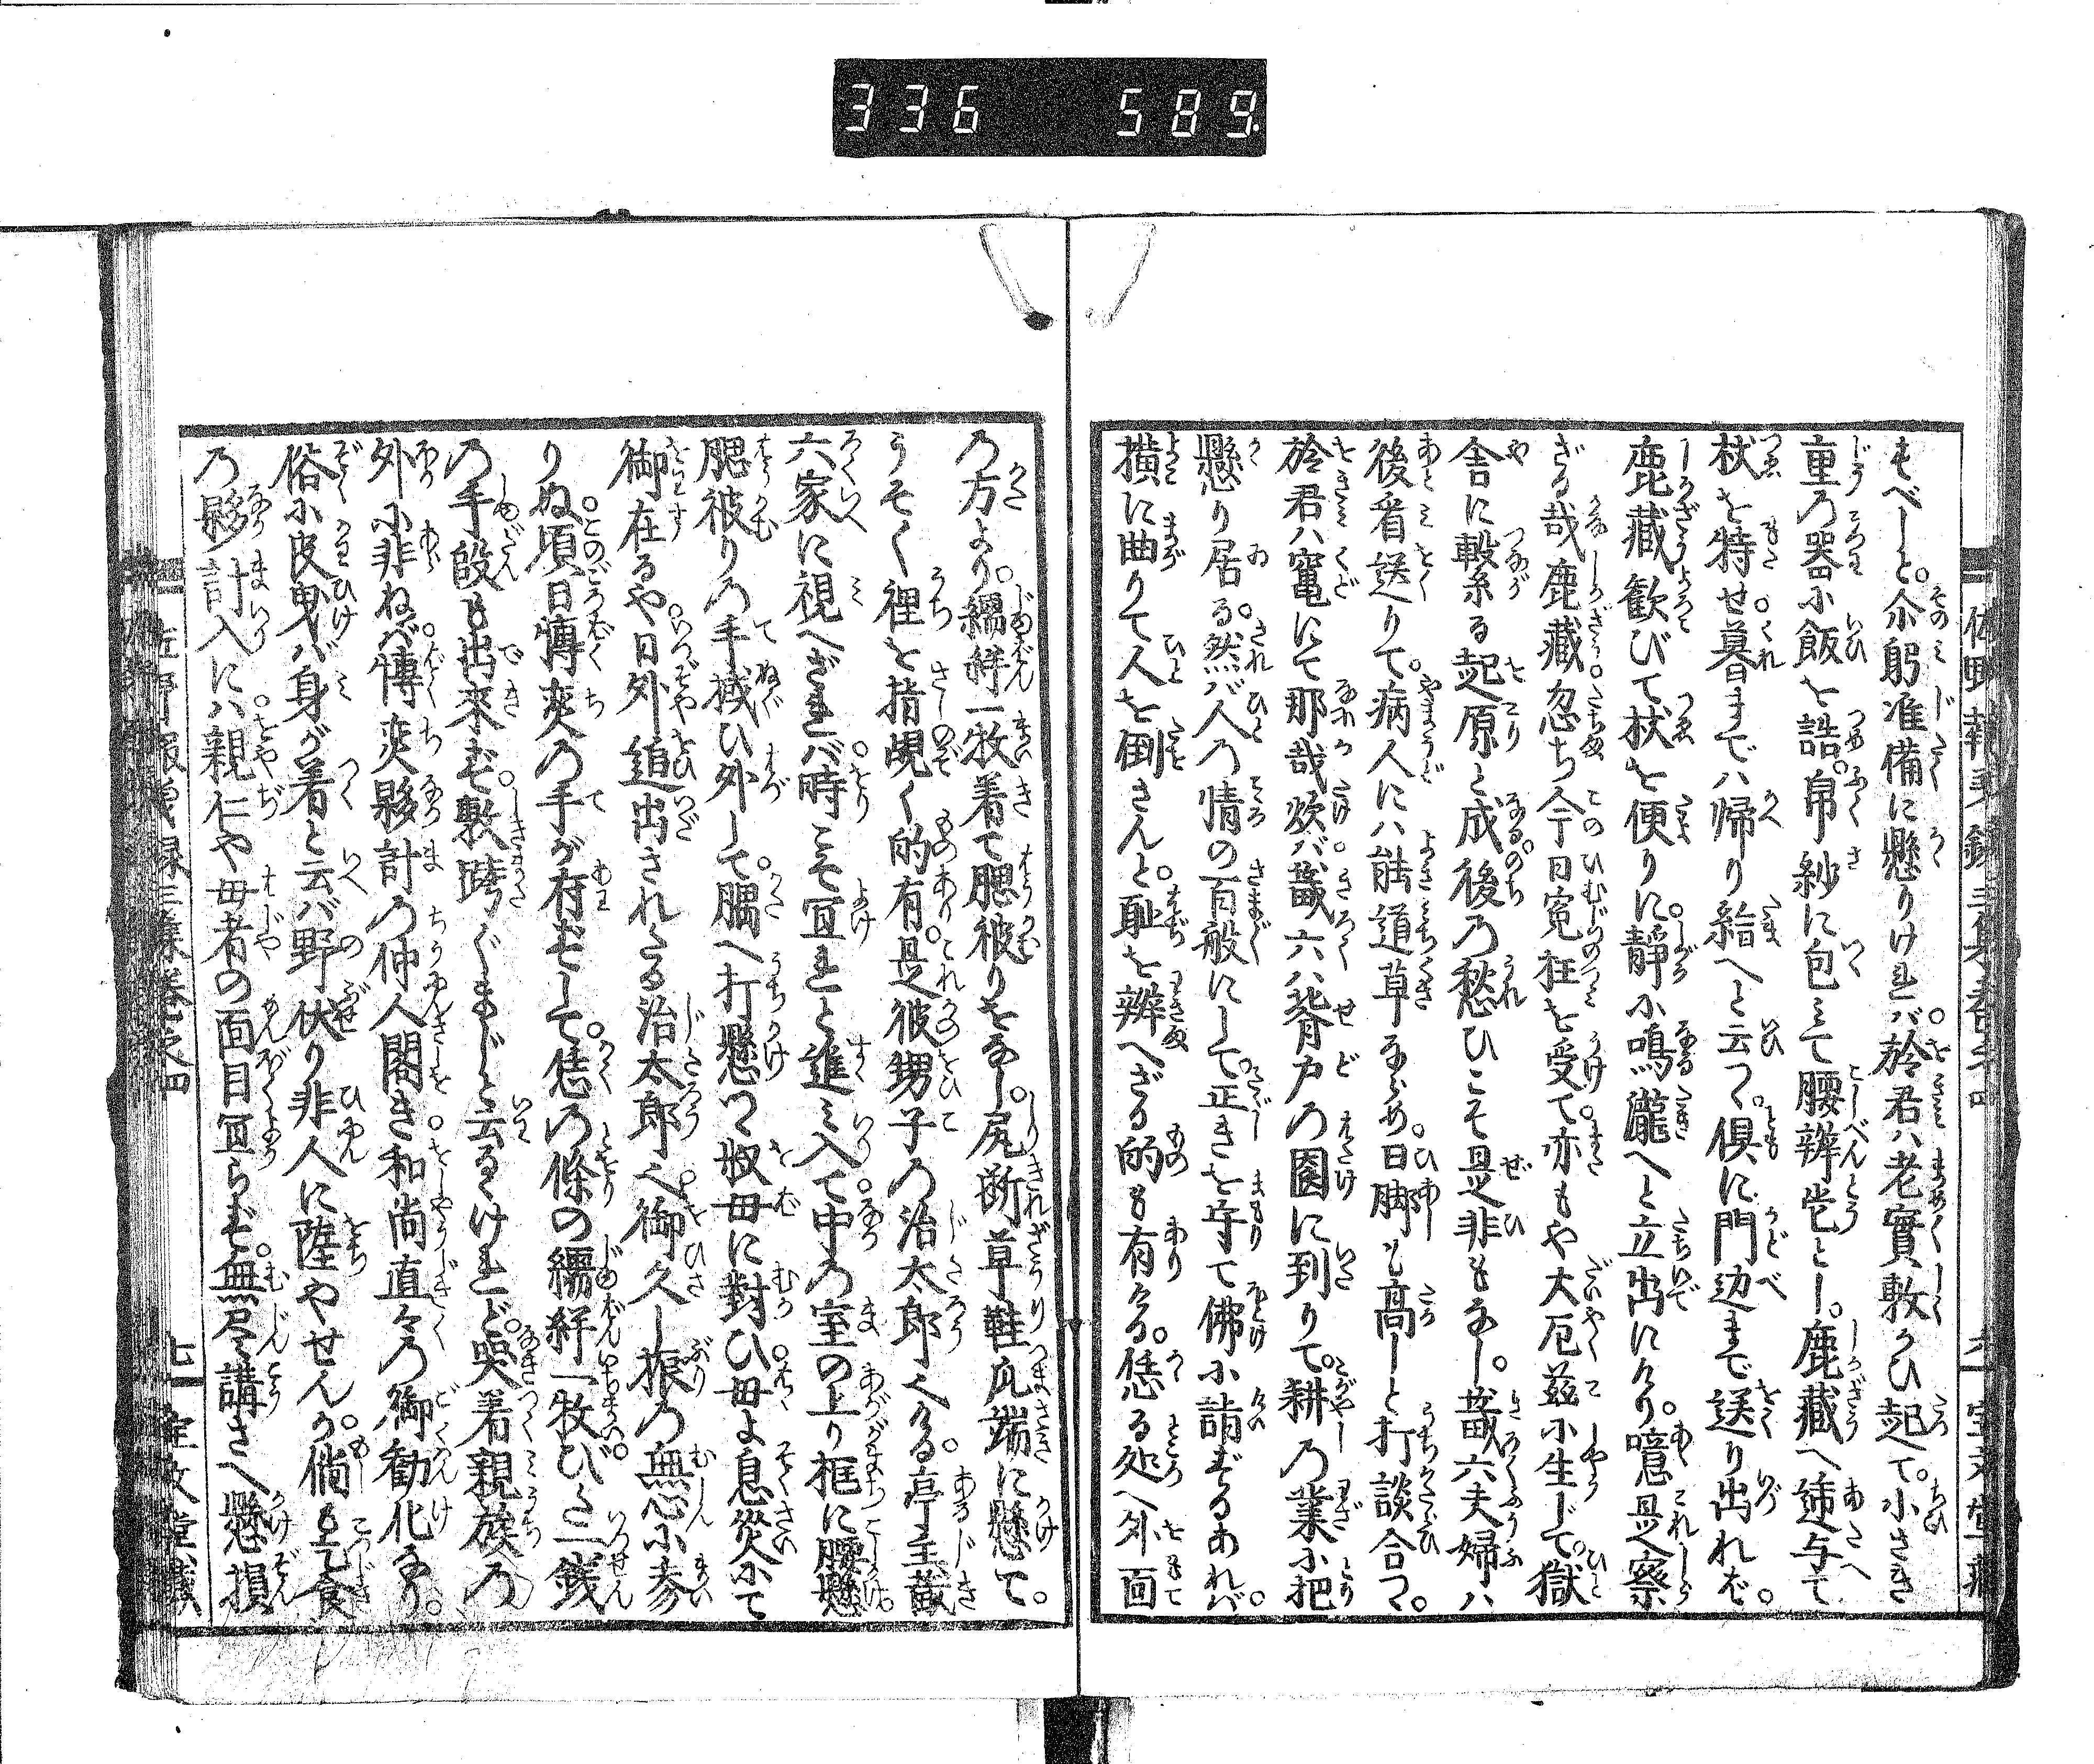 336 589.
もべしと。尒躬准備に懸りけれバ。於君ハ老實敷かひ起て。小さき
重の器に飯を誥。帛紗に包みて腰辨当とし。鹿藏へ逓与て
杖を特せ。暮までハ帰り給へと云つゝ。倶に門辺まで送り出れば。
鹿藏歓びて杖を便りに。靜に鳴瀧へと立出にけり。噫是察
ざる哉鹿藏。忽ち今日寃枉を受て。亦もや大厄茲に生じて。獄
舎に轂系る起原と成。後の愁ひこそ是非もなし。藏六夫婦ハ
後看送りて。病人にハ能道草ならめ。日脚も高しと打談合つ。
於君ハ竃にて那哉炊バ。藏六ハ背戸の園に到りて。耕の業に把
懸り居る。然バ人の情の百般にして。正きを守て佛に請ずるあれバ。
横に曲りて人を倒さんと。耻を辨へざる的も有ける。恁る処へ外面
の方より。繻絆一牧着て腮被りをなし。尻断草鞋爪端に懸て。
うそ〳〵裡を指覗く的有。是彼甥子の治太郎へける。亭主藏
六家に視へざれバ。時こそ宜れと進み入て。中の室の上り框に腰懸。
腮被りの手拭ひ外して。隅へ打懸つゝ叔母に對ひ。母よ息災にて
御在るや。日外追出されたる治太郎へ。御久し振の無心に参
りぬ。頃日慱奕の手が有ずして。恁の條の繻絆一牧。びた一銭
の手段も出來ず。敷蹐ぐまじと云るけれど。哭着親族の
外に非ねバ。慱奕夥計の仲人閣き。和尚直々の御勧化なり。
俗に皮曳バ身が着と云バ。野伏り非人に墜やせんか。倘も乞食
の夥計入にハ。親仁や母者の面目宜らず。無尽講さへ懸損
七 宝文堂藏